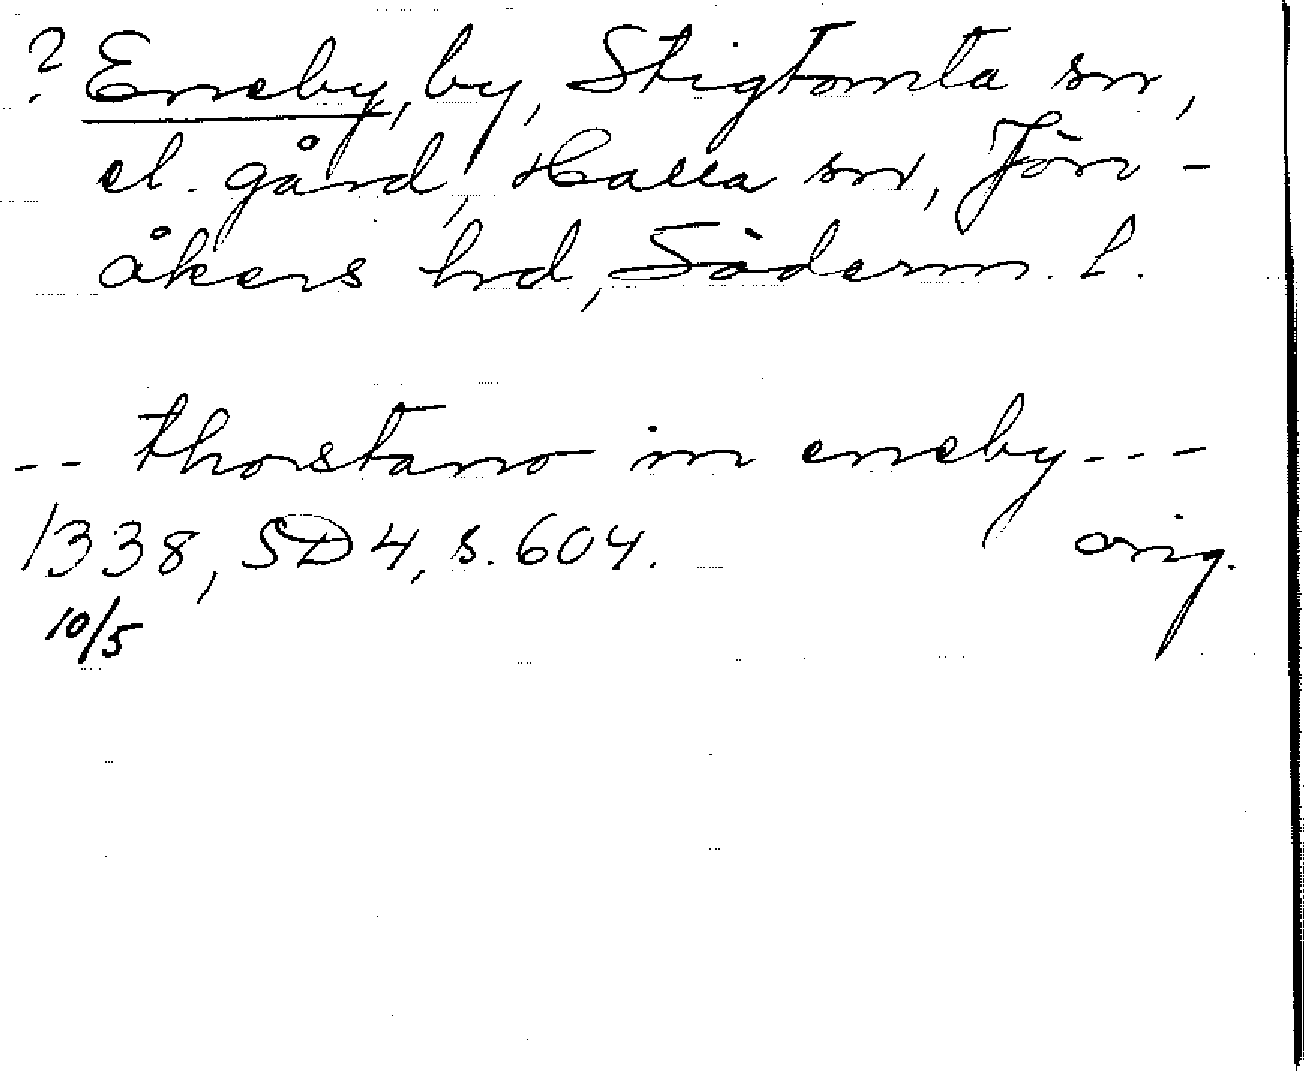 ? Eneby, by, Stigtomta sn,
el. gård, Halla sn, Jön-
åkers hd, Söderm. l.
-- thorstano in eneby ---
1338, SD 4, s. 604. orig.
10/5